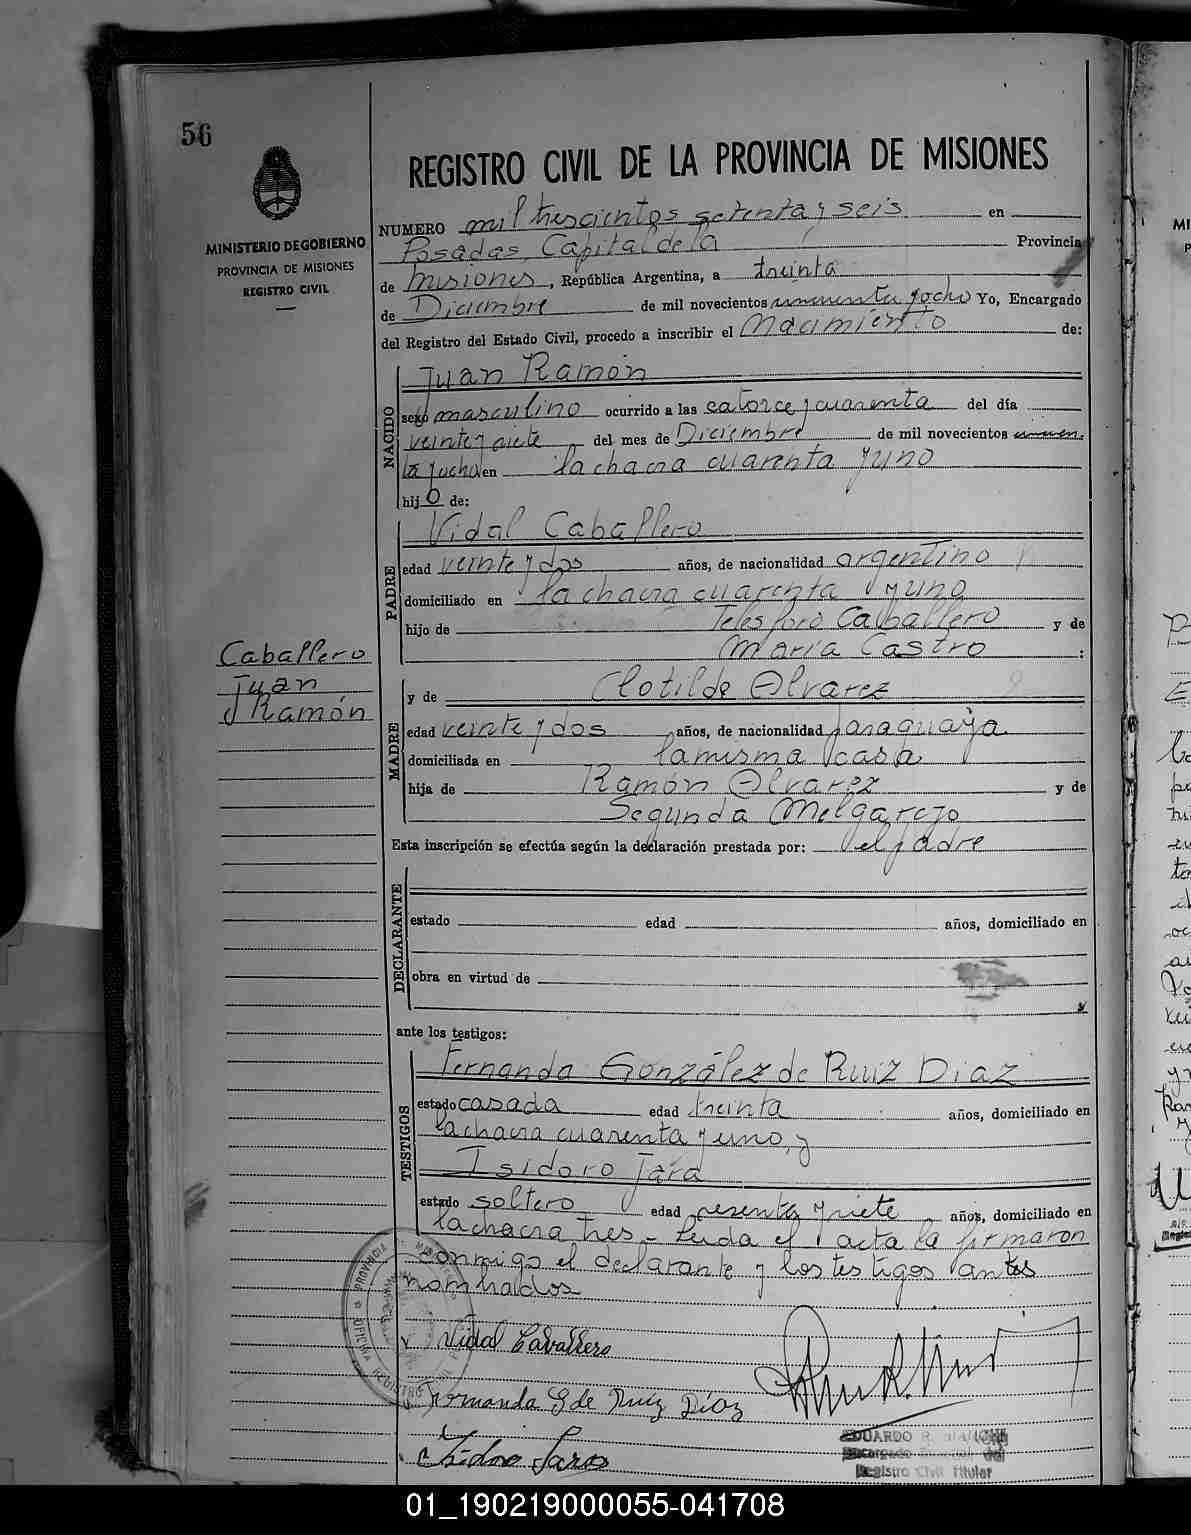 56
MINISTERIO DE GOBIERNO
PROVINCIA DE MISIONES
REGISTRO CIVIL
REGISTRO CIVIL DE LA PROVINCIA DE MISIONES
NUMERO mil trescientos setenta y seis en
Posadas, Capital de la Provincia
de Misiones, República Argentina, a treinta
de Diciembre de mil novecientos cincuenta y ocho Yo, Encargado
del Registro del Estado Civil, procedo a inscribir el Nacimiento de:
NACIDO
Juan Ramón
sexo masculino ocurrido a las catorce y cuarenta del día
veinte y siete del mes de Diciembre de mil novecientos cincuen
ta y ocho en la chacra cuarenta y uno
hijo de:
PADRE
Vidal Caballero
edad veinte y dos años, de nacionalidad argentino
domiciliado en la chacra cuarenta y uno
hijo de Telesforo Caballero y de
María Castro :
Caballero
Juan
Ramón
MADRE
y de Clotilde Alvarez
edad veinte y dos años, de nacionalidad paraguaya
domiciliada en la misma casa
hija de Ramón Alvarez y de
Segunda Melgarejo
Esta inscripción se efectúa según la declaración prestada por: el padre
DECLARANTE
estado edad años, domiciliado en
obra en virtud de
ante los testigos:
TESTIGOS
Fernanda González de Ruiz Diaz
estado casada edad treinta años, domiciliado en
la chacra cuarenta y uno, y
Isidoro Jara
estado soltero edad sesenta y siete años, domiciliado en
la chacra tres - Leida el acta la firmaron
conmigo el declarante y los testigos antes
nombrados
Vidal Cavallero
Fernanda G de Ruiz Díaz
Isidoro Jara
EDUARDO R.
Registro Civil Titular
01_190219000055-041708